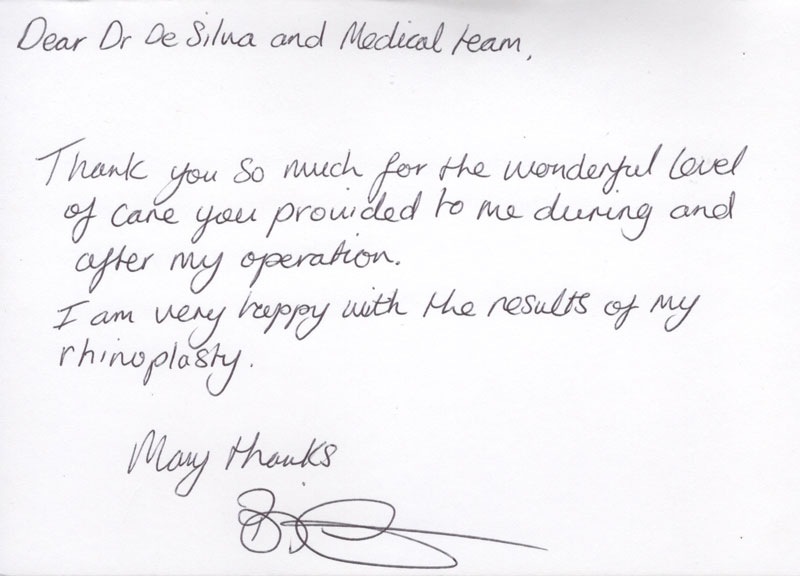 Dear Dr De Silva and Medical team,
Thank you so much for the wonderful level
of care you provided to me during and
after my operation.
I am very happy with the results of my
rhinoplasty.
Many thanks